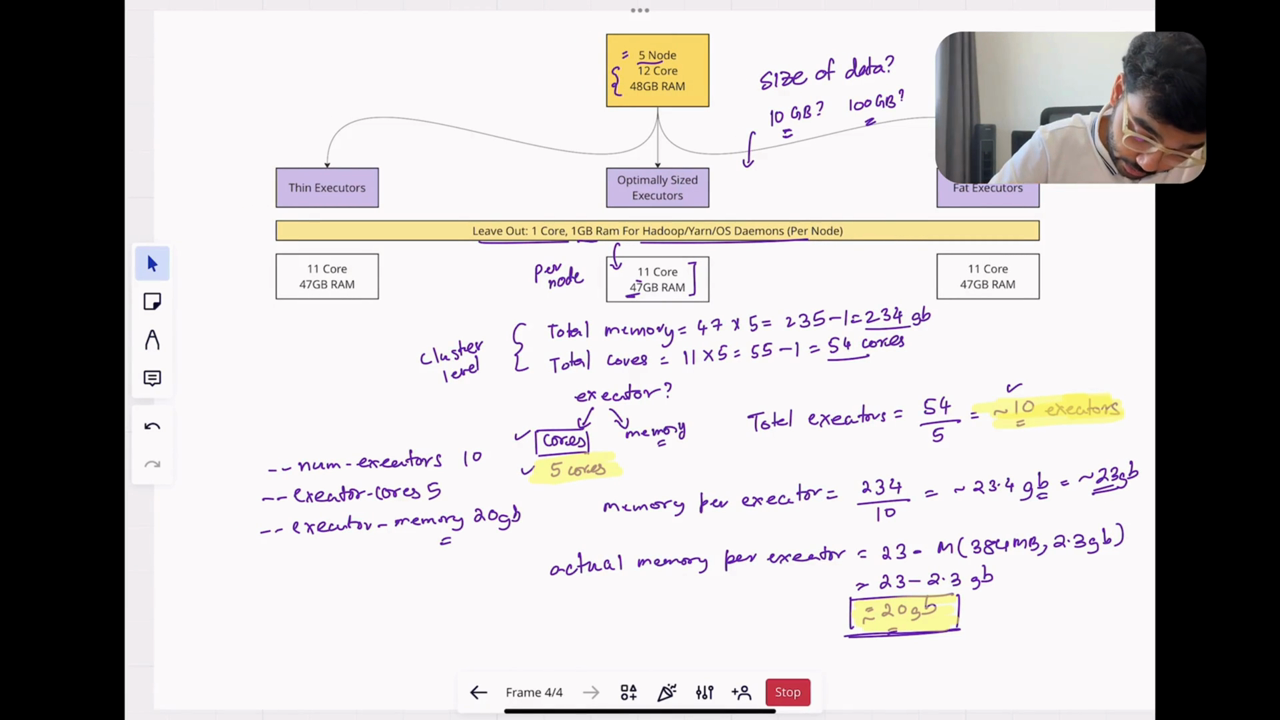 = 5 Node
12 Core
48GB RAM
size of data?
10 GB? 100GB?
Thin Executors
Optimally Sized
Executors
Fat Executors
Leave Out: 1 Core, 1GB Ram For Hadoop/Yarn/OS Daemons (Per Node)
Per node
11 Core
47GB RAM
11 Core
47GB RAM
11 Core
47GB RAM
cluster level
Total memory = 47 x 5 = 235-1 = 234 gb
Total cores = 11 x 5 = 55-1 = 54 cores
executor?
cores
memory
5 cores
Total executors = 54/5 = ~10 executors
--num-executors 10
--executor-cores 5
--executor-memory 20gb
memory per executor = 234/10 = ~23.4 gb = ~23gb
actual memory per executor = 23 - M(384MB, 2.3gb)
~ 23-2.3 gb
≈ 20gb
Frame 4/4
Stop